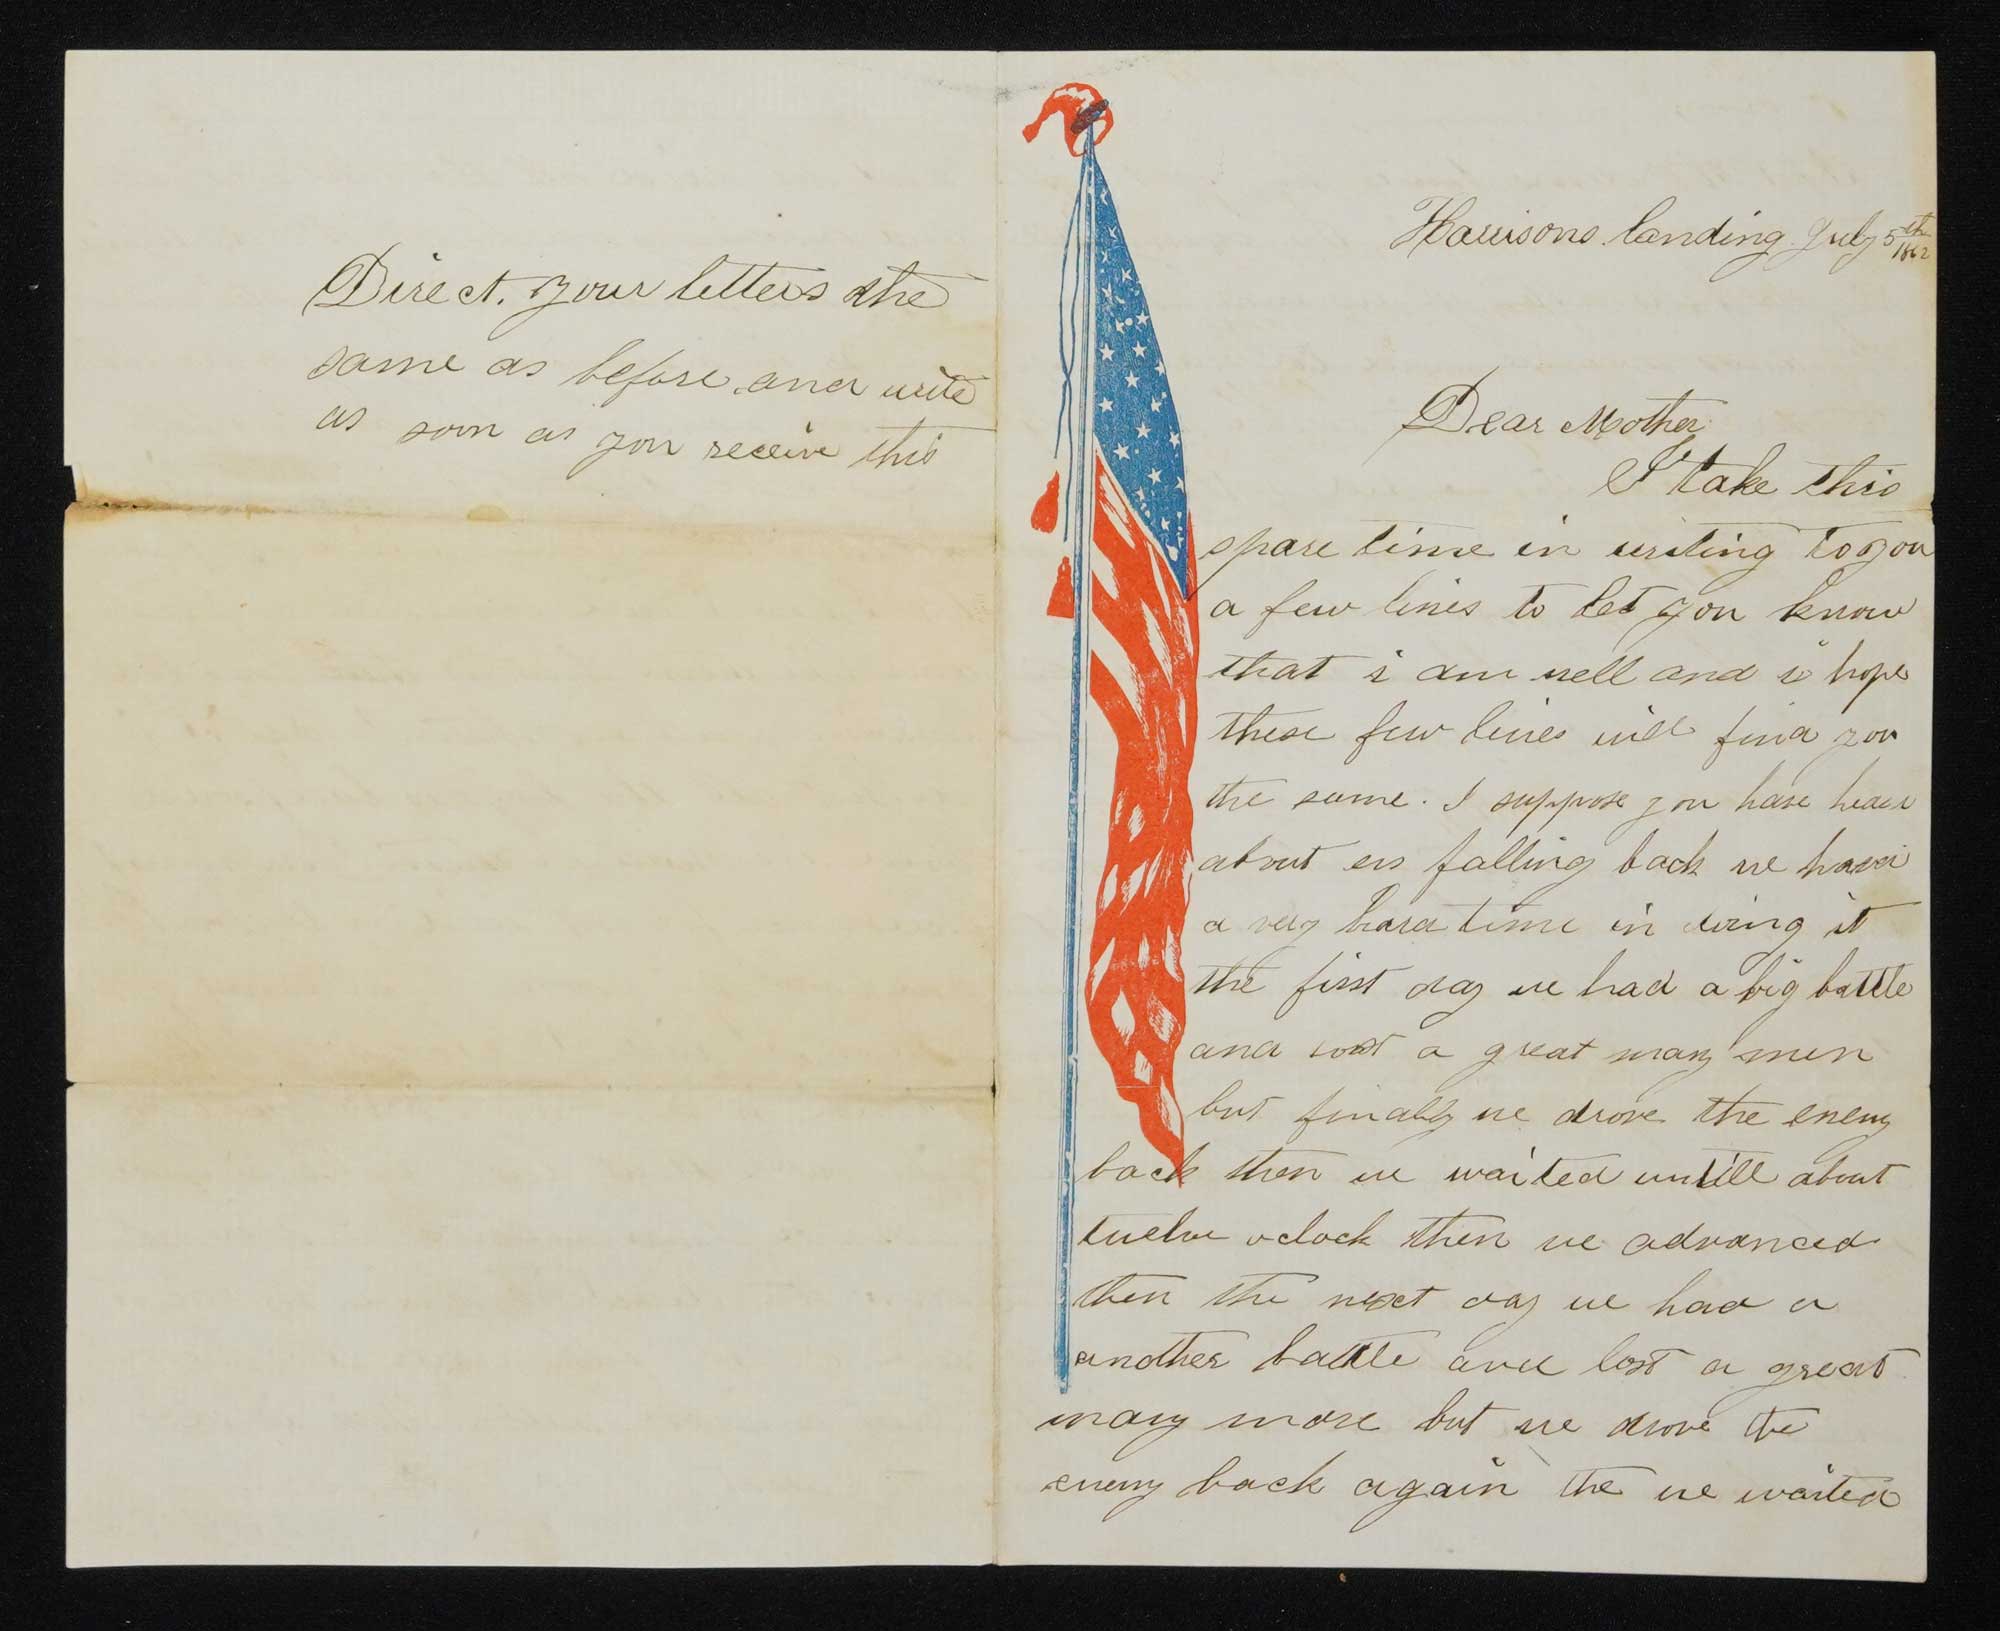 Direct. your letters the
same as before and write
as soon as you receive this
Harrisons landing July 5th
1862
Dear Mother
I take this
spare time in writing to you
a few lines to let you know
that i am well and i hope
these few lines will find you
the same. I suppose you have hear
about us falling back we have
a very hard time in doing it
the first day we had a big battle
and lost a great many men
but finally we drove the enemy
back then we waited untill about
twelve oclock then we advanced
then the next day we had a
another battle and lost a great
many more but we drove the
enemy back again the we waited